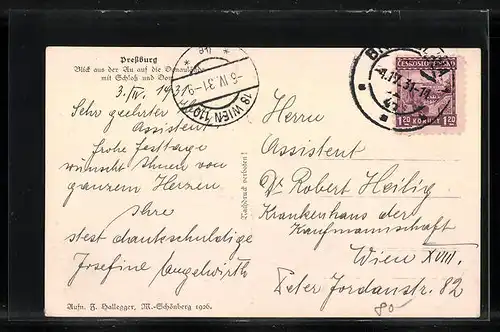 Preßburg
Blick aus der Au auf die Donaulände
mit Schloß und Dom
3./IV. 1931
Sehr geehrter
Assistent
frohe Festtage
wünscht Ihnen von
ganzem Herzen
Ihre
stest dankschuldige
Josefine
Aufn. F. Hallegger, M.-Schönberg 1926.
Nachdruck verboten!
18 WIEN 110
-5.IV.31-9
ČESKOSLOVENSKO
1.20 KORUNY 1.20
Herrn
Assistent
Dr Robert Heilig
Krankenhaus der
Kaufmannschaft
Wien XVIII.
Peter Jordanstr. 82
80